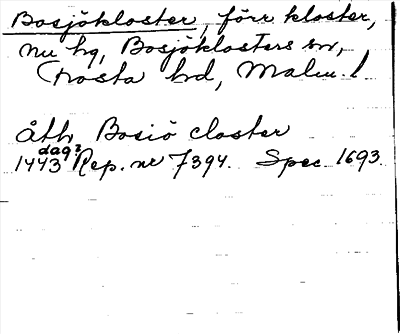 Bosjökloster, förr kloster,
nu hg, Bosjöklosters sn,
Frosta hd, Malm. l.
åth Bosiö closter
1443 dag? Rep. nr 7394. Spec. 1693